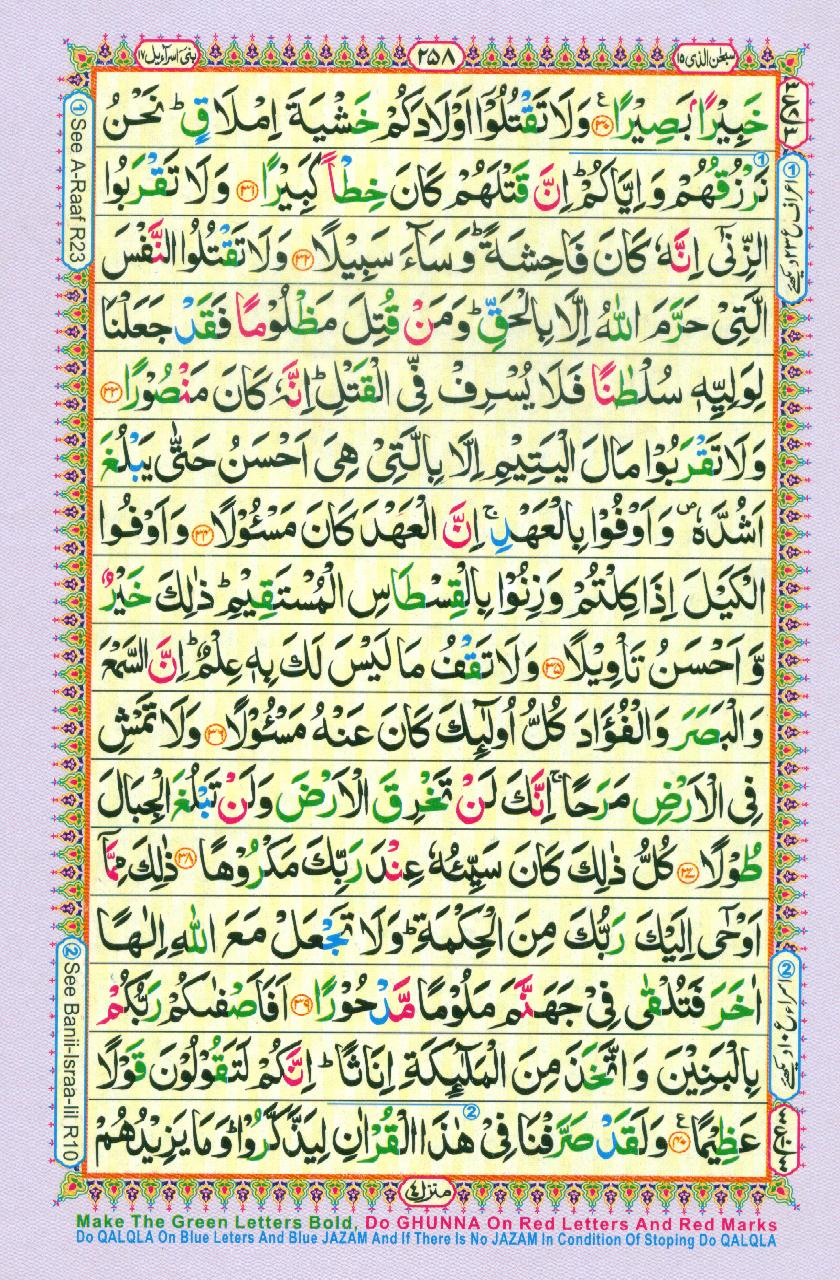 سبحٰن الذی ۱۵
۲۵۸
بنی اسرآءیل ۱۷
خَبِيْرًۢا بَصِيْرًا ۝۳۰ۧ وَلَا تَقْتُلُوْۤا اَوْلَادَكُمْ خَشْيَةَ اِمْلَاقٍ ؕ نَحْنُ
نَرْزُقُهُمْ وَاِيَّاكُمْ ؕ اِنَّ قَتْلَهُمْ كَانَ خِطْاً كَبِيْرًا ۝۳۱ وَلَا تَقْرَبُوا
الزِّنٰۤی اِنَّهٗ كَانَ فَاحِشَةً ؕ وَسَآءَ سَبِيْلًا ۝۳۲ وَلَا تَقْتُلُوا النَّفْسَ
الَّتِیْ حَرَّمَ اللّٰهُ اِلَّا بِالْحَقِّ ؕ وَمَنْ قُتِلَ مَظْلُوْمًا فَقَدْ جَعَلْنَا
لِوَلِيِّهٖ سُلْطٰنًا فَلَا يُسْرِفْ فِّی الْقَتْلِ ؕ اِنَّهٗ كَانَ مَنْصُوْرًا ۝۳۳
وَلَا تَقْرَبُوْا مَالَ الْيَتِيْمِ اِلَّا بِالَّتِیْ هِیَ اَحْسَنُ حَتّٰی يَبْلُغَ
اَشُدَّهٗ ۪ وَاَوْفُوْا بِالْعَهْدِ ۚ اِنَّ الْعَهْدَ كَانَ مَسْـُٔوْلًا ۝۳۴ وَاَوْفُوا
الْكَيْلَ اِذَا كِلْتُمْ وَزِنُوْا بِالْقِسْطَاسِ الْمُسْتَقِيْمِ ؕ ذٰلِكَ خَيْرٌ
وَّاَحْسَنُ تَاْوِيْلًا ۝۳۵ وَلَا تَقْفُ مَا لَيْسَ لَكَ بِهٖ عِلْمٌ ؕ اِنَّ السَّمْعَ
وَالْبَصَرَ وَالْفُؤَادَ كُلُّ اُولٰٓئِكَ كَانَ عَنْهُ مَسْـُٔوْلًا ۝۳۶ وَلَا تَمْشِ
فِی الْاَرْضِ مَرَحًا ۚ اِنَّكَ لَنْ تَخْرِقَ الْاَرْضَ وَلَنْ تَبْلُغَ الْجِبَالَ
طُوْلًا ۝۳۷ كُلُّ ذٰلِكَ كَانَ سَيِّئُهٗ عِنْدَ رَبِّكَ مَكْرُوْهًا ۝۳۸ ذٰلِكَ مِمَّاۤ
اَوْحٰۤی اِلَيْكَ رَبُّكَ مِنَ الْحِكْمَةِ ؕ وَلَا تَجْعَلْ مَعَ اللّٰهِ اِلٰهًا
اٰخَرَ فَتُلْقٰی فِیْ جَهَنَّمَ مَلُوْمًا مَّدْحُوْرًا ۝۳۹ اَفَاَصْفٰىكُمْ رَبُّكُمْ
بِالْبَنِيْنَ وَاتَّخَذَ مِنَ الْمَلٰٓئِكَةِ اِنَاثًا ؕ اِنَّكُمْ لَتَقُوْلُوْنَ قَوْلًا
عَظِيْمًا ۝۴۰ۧ وَلَقَدْ صَرَّفْنَا فِیْ هٰذَا الْقُرْاٰنِ لِيَذَّكَّرُوْا ؕ وَمَا يَزِيْدُهُمْ
منزل ٤
① See A-Raaf R23
② See Banii-Israa-Iil R10
Make The Green Letters Bold, Do GHUNNA On Red Letters And Red Marks
Do QALQLA On Blue Leters And Blue JAZAM And If There Is No JAZAM In Condition Of Stoping Do QALQLA